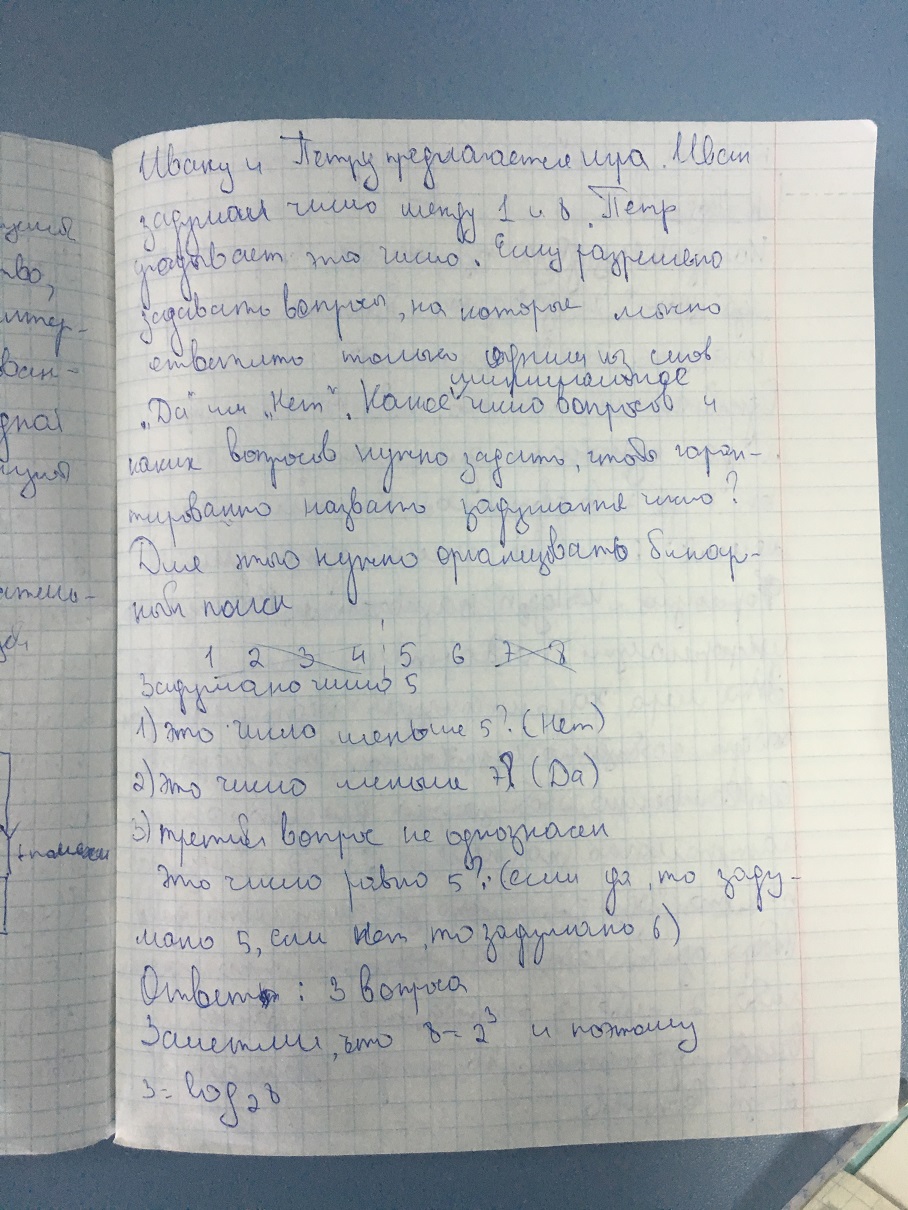 Ивану и Петру предлагается игра. Иван
задумал число между 1 и 8. Петр
угадывает это число. Ему разрешено
задавать вопросы, на которые можно
ответить только одним из слов
"Да" или "Нет". Какое минимальное число вопросов и
каких вопросов нужно задать, чтобы гаран-
тированно назвать задуманное число?
Для этого нужно организовать бинар-
ный поиск
1 2 3 4 5 6 7 8
Задумано число 5
1) Это число меньше 5? (Нет)
2) Это число меньше 7? (Да)
3) третий вопрос не однозначен
Это число равно 5?: (если да, то заду-
мано 5, если нет, то задумано 6)
Ответ: 3 вопроса
Заметим, что 8 = 2³ и поэтому
3 = log₂8